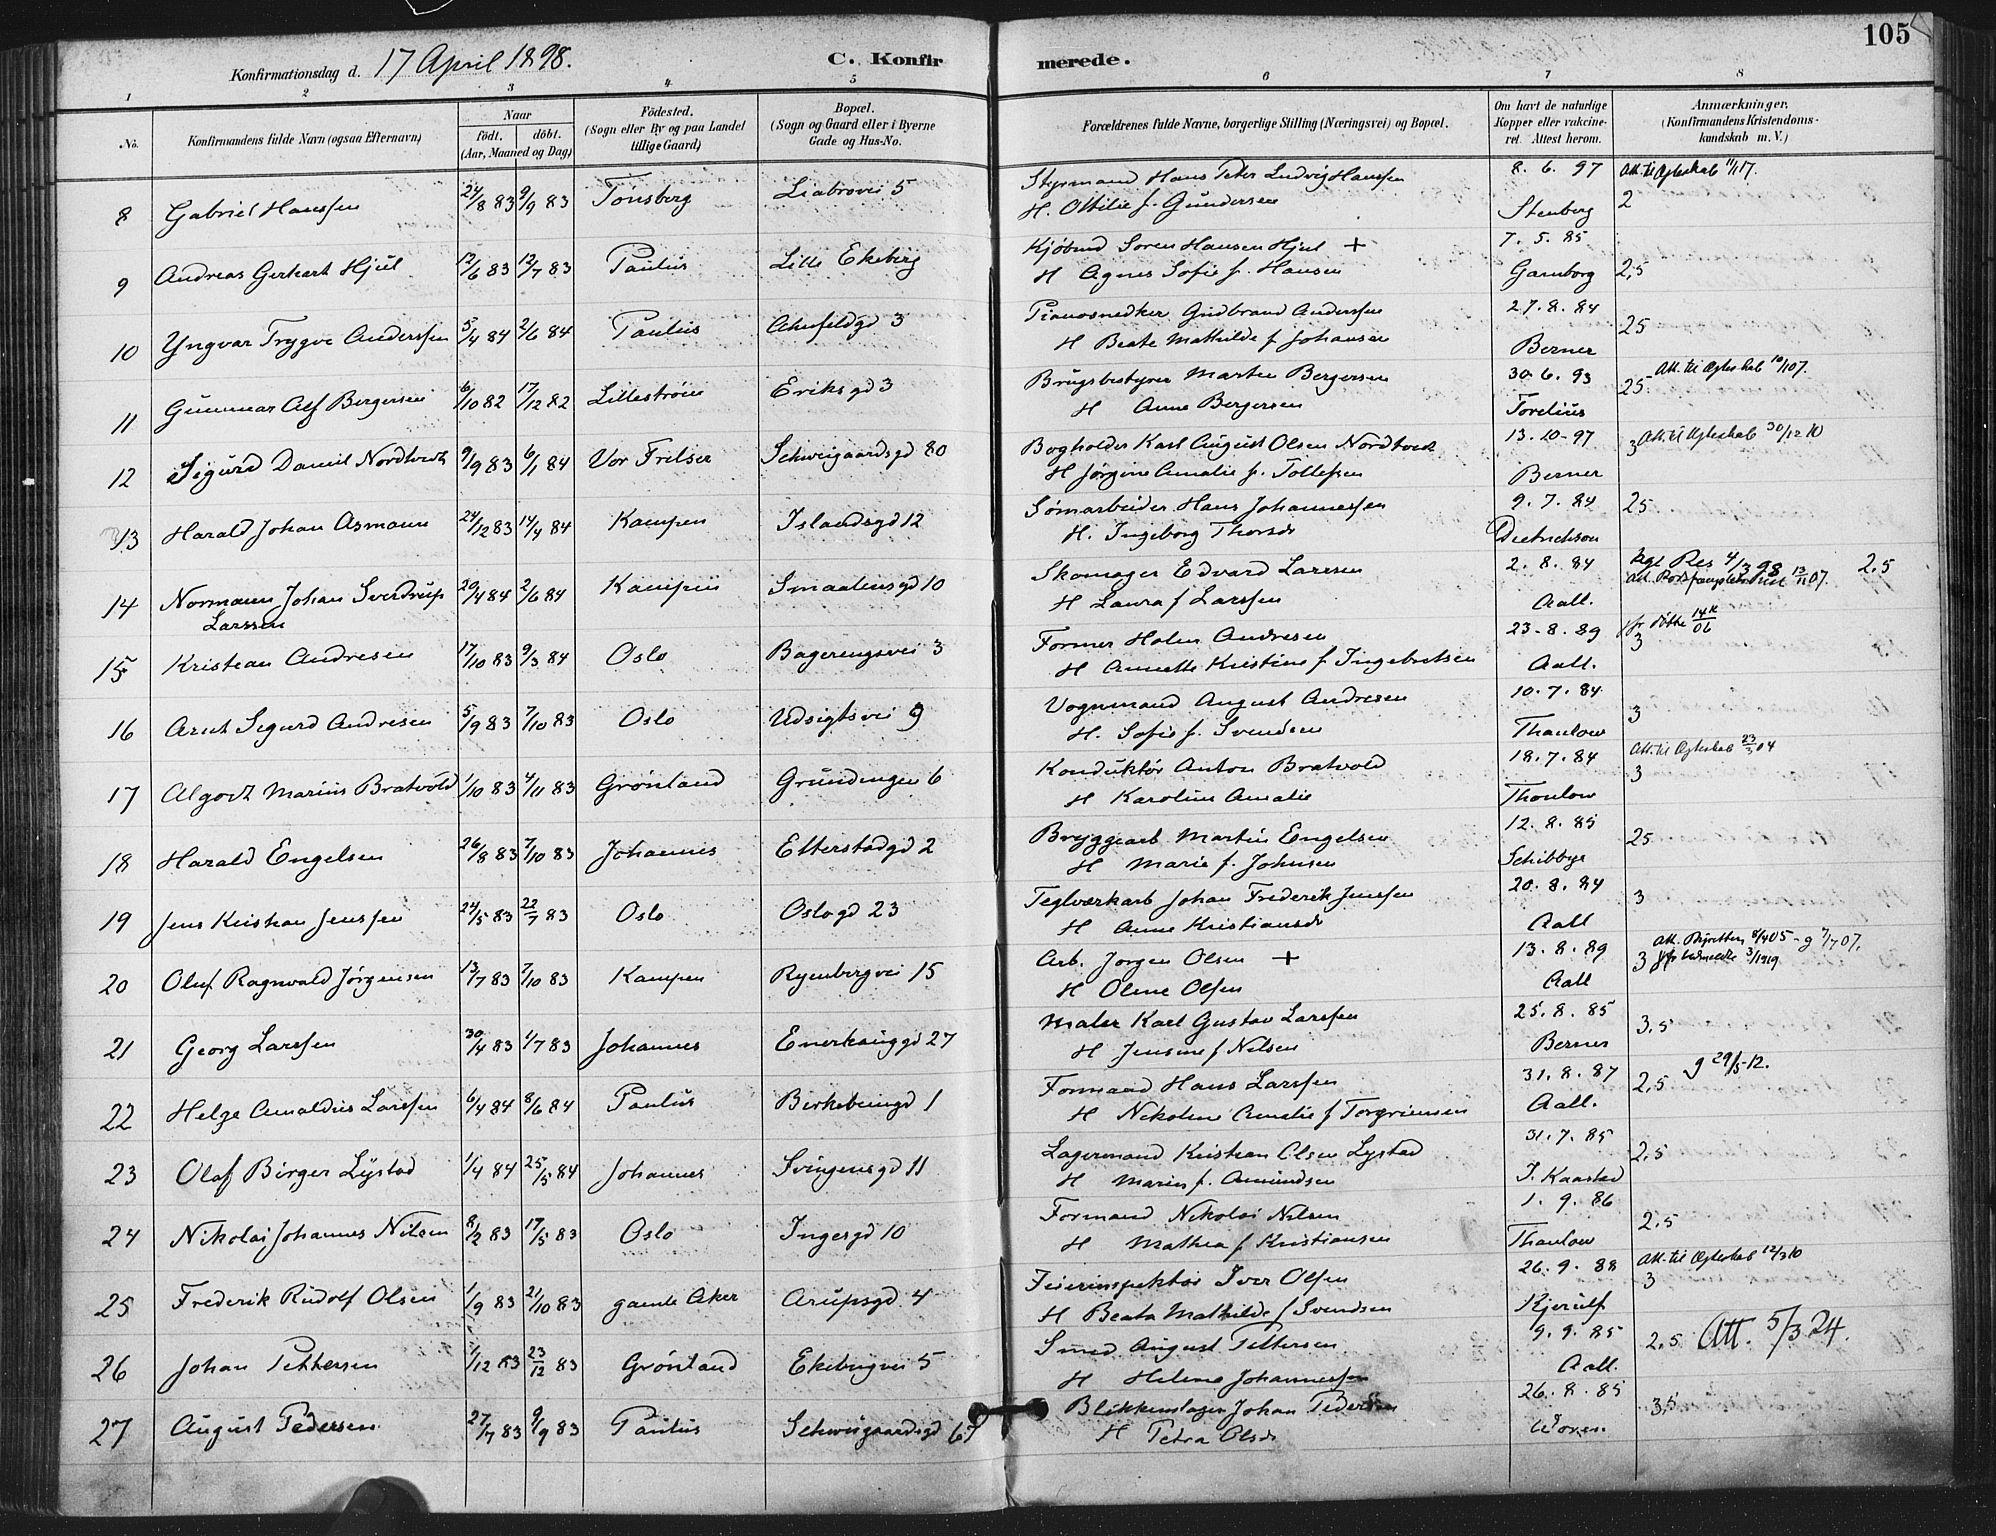 105
Konfirmationsdag d. 17 April 1898.
C. Konfirmerede.
1 2 3 4 5 6 7 8
No.
Konfirmandens fulde Navn (ogsaa Efternavn)
Naar
födt. döbt.
(Aar, Maaned og Dag)
Födested.
(Sogn eller By og paa Landet
tillige Gaard)
Bopæl.
(Sogn og Gaard eller i Byerne
Gade og Hus-No.
Forældrenes fulde Navne, borgerlige Stilling (Næringsvei) og Bopæl.
Om havt de naturlige
Kopper eller vakcine-
ret. Attest herom.
Anmærkninger.
(Konfirmandens Kristendoms-
kundskab m. V.)
8 Gabriel Hanssen 24/8 83 9/9 83 Tønsberg Liabrovei 5 Styrmand Hans Peter Ludvig Hanssen 8. 6. 97 Att. til Ægteskab 11/1 17.
H. Ottilie f. Gundersen Stenberg 2
9 Andreas Gerhart Hjul 12/6 83 12/7 83 Paulus Lille Ekeberg Kjøbmd Soren Hansen Hjul + 7. 5. 85
H Agnes Sofie f. Hansen Garnborg 2,5
10 Yngvar Trygve Anderssen 5/4 84 2/6 84 Paulus gd 3 Pianosnedker Gudbrand Anderssen 27. 8. 84
H Beate Mathilde f Johansen Berner 25
11 Gunnar Alf Bergersen 6/10 82 17/12 82 Lillestrøm Eriks gd 3 Brugsbestyrer Martin Bergersen 30. 6. 93 Att. til Ægteskab 10/1 07.
H Anne Bergersen Torelius 25
12 Sigurd Daniel Nordtvedt 9/9 83 6/1 84 Vor Frelser Schweigaardsgd 80 Bogholder Karl August Olsen Nordtvedt 13. 10 - 97 3 Att. til Ægteskab 30/12 10
H Jørgine Amalie f. Tollefsen Berner
13 Harald Johan Asmann 24/12 83 14/4 84 Kampen Islandsgd 12 Sømarbeider Hans Johannessen 9. 7. 84 25
H. Ingeborg Thorsdr Dietrichson
14 Normann Johan Sverdrup 20/4 84 2/6 84 Kampen Smaalensgd 10 Skomager Edvard Larssen 2. 8. 84 Kgl Res 4/3 98 2,5
Larssen
H Laura f Larssen Aall.
15 Kristian Andresen 17/10 83 9/3 84 Oslo Bagerengsvei 3 Former Holm Andresen 23 - 8. 89 3
H Annette Kristine f Ingebretsen Aall.
16 Arnt Sigurd Andresen 5/9 83 7/10 83 Oslo Udsigtsvei 9 Vognmand August Andresen 10. 7. 84
H. Sofie f. Svendsen Thaulow 3
17 Algodt Marius Bratvold 1/10 83 4/11 83 Grønland Grundingen 6 Konduktør Anton Bratvold 18. 7. 84 Att. til Ægteskab 23/3 04
H Karoline Amalie Thaulow 3
18 Harald Engelsen 26/8 83 7/10 83 Johannes Etterstadgd 2 Bryggearb Martin Engelsen 12. 8. 85 25
H Marie f. Johnsen Schibbye
19 Jens Kristian Jenssen 24/5 83 22/7 83 Oslo Oslogd 23 Teglværkarb Johan Frederik Jenssen 20. 8. 84 3
H Anne Kristiansdr Aall
20 Oluf Ragnvald Jørgensen 13/7 83 7/10 83 Kampen Rynbergvei 15 Arb. Jørgen Olsen + 13. 8. 89 3
H Oline Olsen Aall
21 Georg Larssen 30/4 83 1/7 83 Johannes Enerhauggd 27 Maler Karl Gustav Larssen 25. 8. 85 3,5
H Jensine f Nilsen Berner
22 Helge Arnaldus Larssen 6/4 84 8/6 84 Paulus Birkebeingd 1 Formand Hans Larssen 31. 8. 87 2,5 g 29/5 - 12.
H Nikoline Amalie f Torgriemsen Aall.
23 Olaf Birger Lystad 1/4 84 25/5 84 Johannes Svingensgd 11 Lagermand Kristian Olsen Lystad 31. 7. 85 2,5
H Marin f. Amundsen J. Kaastad
24 Nikolai Johannes Nilsen 8/2 83 17/5 83 Oslo Ingesgd 10 Formand Nikolai Nilsen 1. 9. 86
H Mathea f Kristiansen Thaulow 2,5
25 Frederik Rudolf Olsen 1/9 83 21/10 83 gamle Aker Arupsgd. 4 Feierinspektør Iver Olsen 26. 9. 88 Att. til Ægteskab 12/3 10
H Beata Mathilde f Svendsen Kjerulf 3
26 Johan Pettersen 1/12 83 23/12 83 Grønland Ekebergvei 5 Smed August Pettersen 9. 9. 85 2,5 Att. 5/3 24.
H Helene Johannessen Aall.
27 August Pedersen 27/7 83 9/9 83 Paulus Schweigaardsgd 67 Blikkenslager Johan Pedersen 26. 8. 85 3,5
H Petra Olsdr